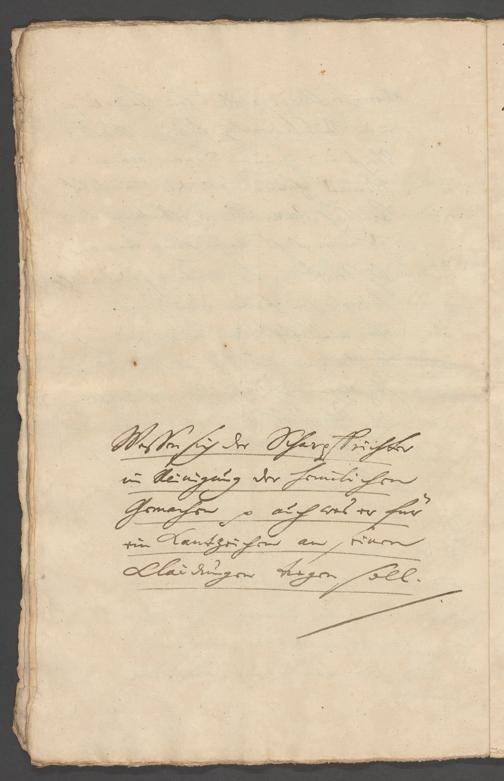 Wessen sich der Scharpffrichter
in Reinigung der heimlichen
Gemachen p auch was er für
ein Kantzeichen an seinen
Klaidungen tragen soll.